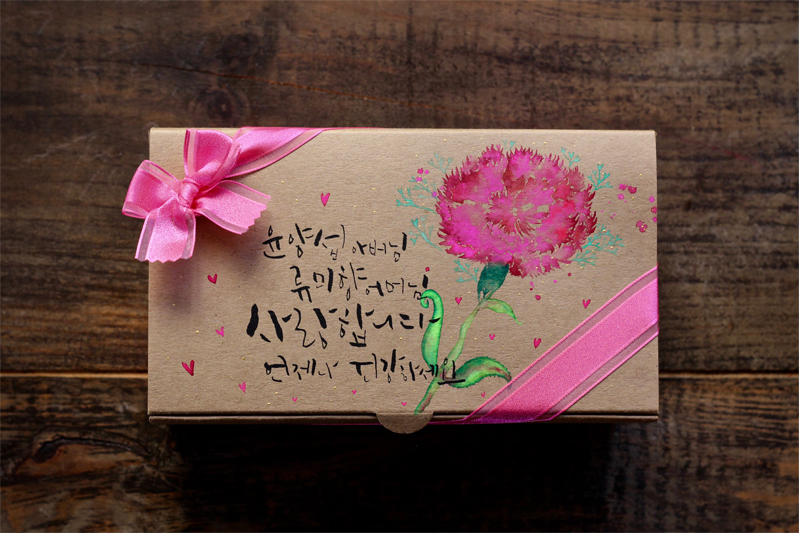 윤양섭 아버님
류미향 어머님
사랑합니다
언제나 건강하세요